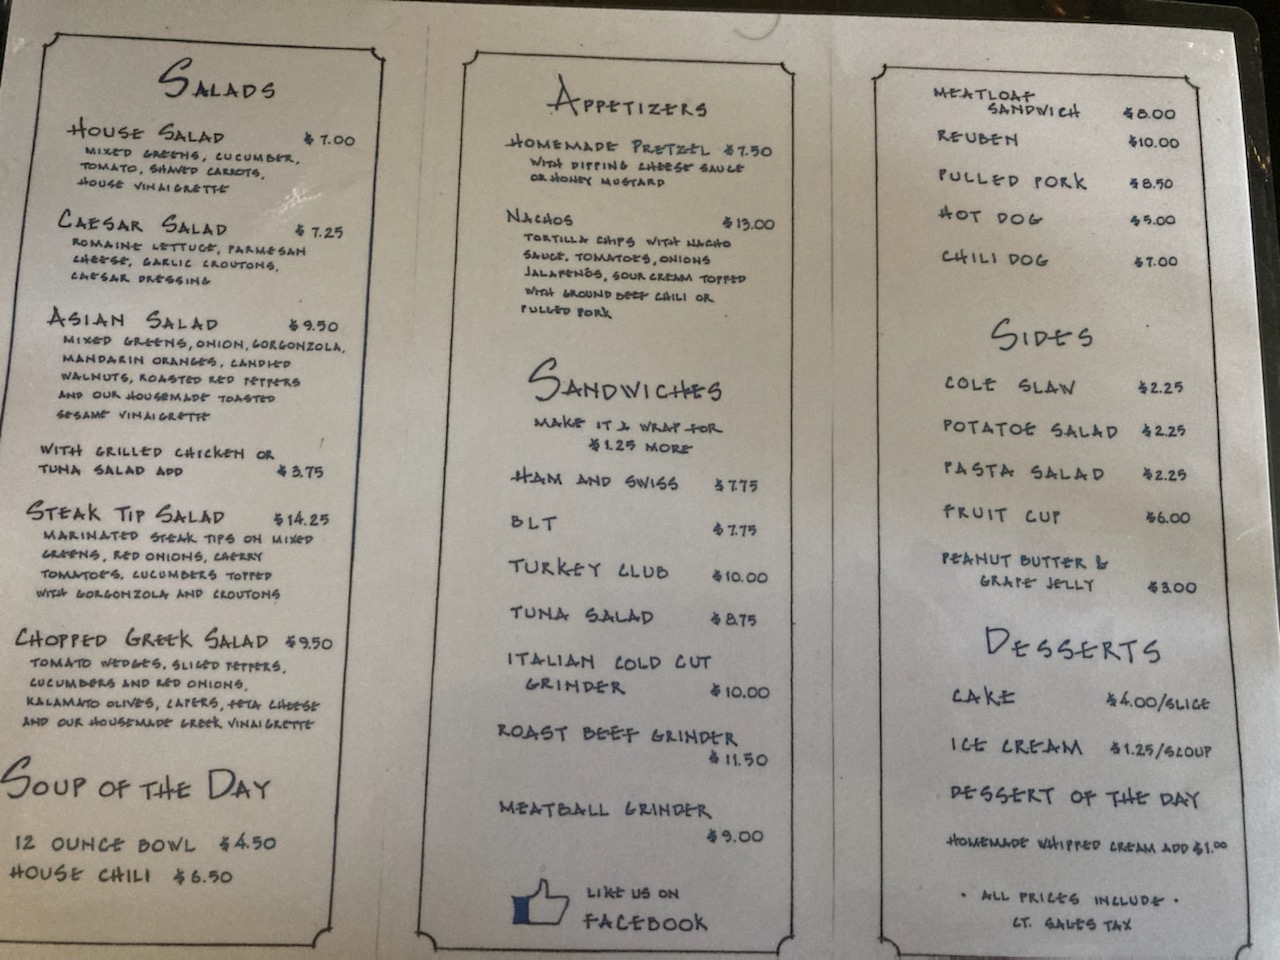 SALADS
HOUSE SALAD $7.00
MIXED GREENS, CUCUMBER,
TOMATO, SHAVED CARROTS,
HOUSE VINAIGRETTE
CAESAR SALAD $7.25
ROMAINE LETTUCE, PARMESAN
CHEESE, GARLIC CROUTONS,
CAESAR DRESSING
ASIAN SALAD $9.50
MIXED GREENS, ONION, GORGONZOLA,
MANDARIN ORANGES, CANDIED
WALNUTS, ROASTED RED PEPPERS
AND OUR HOUSEMADE TOASTED
SESAME VINAIGRETTE
WITH GRILLED CHICKEN OR
TUNA SALAD ADD $3.75
STEAK TIP SALAD $14.25
MARINATED STEAK TIPS ON MIXED
GREENS, RED ONIONS, CHERRY
TOMATOES, CUCUMBERS TOPPED
WITH GORGONZOLA AND CROUTONS
CHOPPED GREEK SALAD $9.50
TOMATO WEDGES, SLICED PEPPERS,
CUCUMBERS AND RED ONIONS,
KALAMATO OLIVES, CAPERS, FETA CHEESE
AND OUR HOUSEMADE GREEK VINAIGRETTE
SOUP OF THE DAY
12 OUNCE BOWL $4.50
HOUSE CHILI $6.50
APPETIZERS
HOMEMADE PRETZEL $7.50
WITH DIPPING CHEESE SAUCE
OR HONEY MUSTARD
NACHOS $13.00
TORTILLA CHIPS WITH NACHO
SAUCE, TOMATOES, ONIONS
JALAPENOS, SOUR CREAM TOPPED
WITH GROUND BEEF CHILI OR
PULLED PORK
SANDWICHES
MAKE IT A WRAP FOR
$1.25 MORE
HAM AND SWISS $7.75
BLT $7.75
TURKEY CLUB $10.00
TUNA SALAD $8.75
ITALIAN COLD CUT
GRINDER $10.00
ROAST BEEF GRINDER
$11.50
MEATBALL GRINDER
$9.00
LIKE US ON
FACEBOOK
MEATLOAF
SANDWICH $8.00
REUBEN $10.00
PULLED PORK $8.50
HOT DOG $5.00
CHILI DOG $7.00
SIDES
COLE SLAW $2.25
POTATOE SALAD $2.25
PASTA SALAD $2.25
FRUIT CUP $6.00
PEANUT BUTTER &
GRAPE JELLY $3.00
DESSERTS
CAKE $4.00/SLICE
ICE CREAM $1.25/SCOUP
DESSERT OF THE DAY
HOMEMADE WHIPPED CREAM ADD $1.00
• ALL PRICES INCLUDE •
CT. SALES TAX